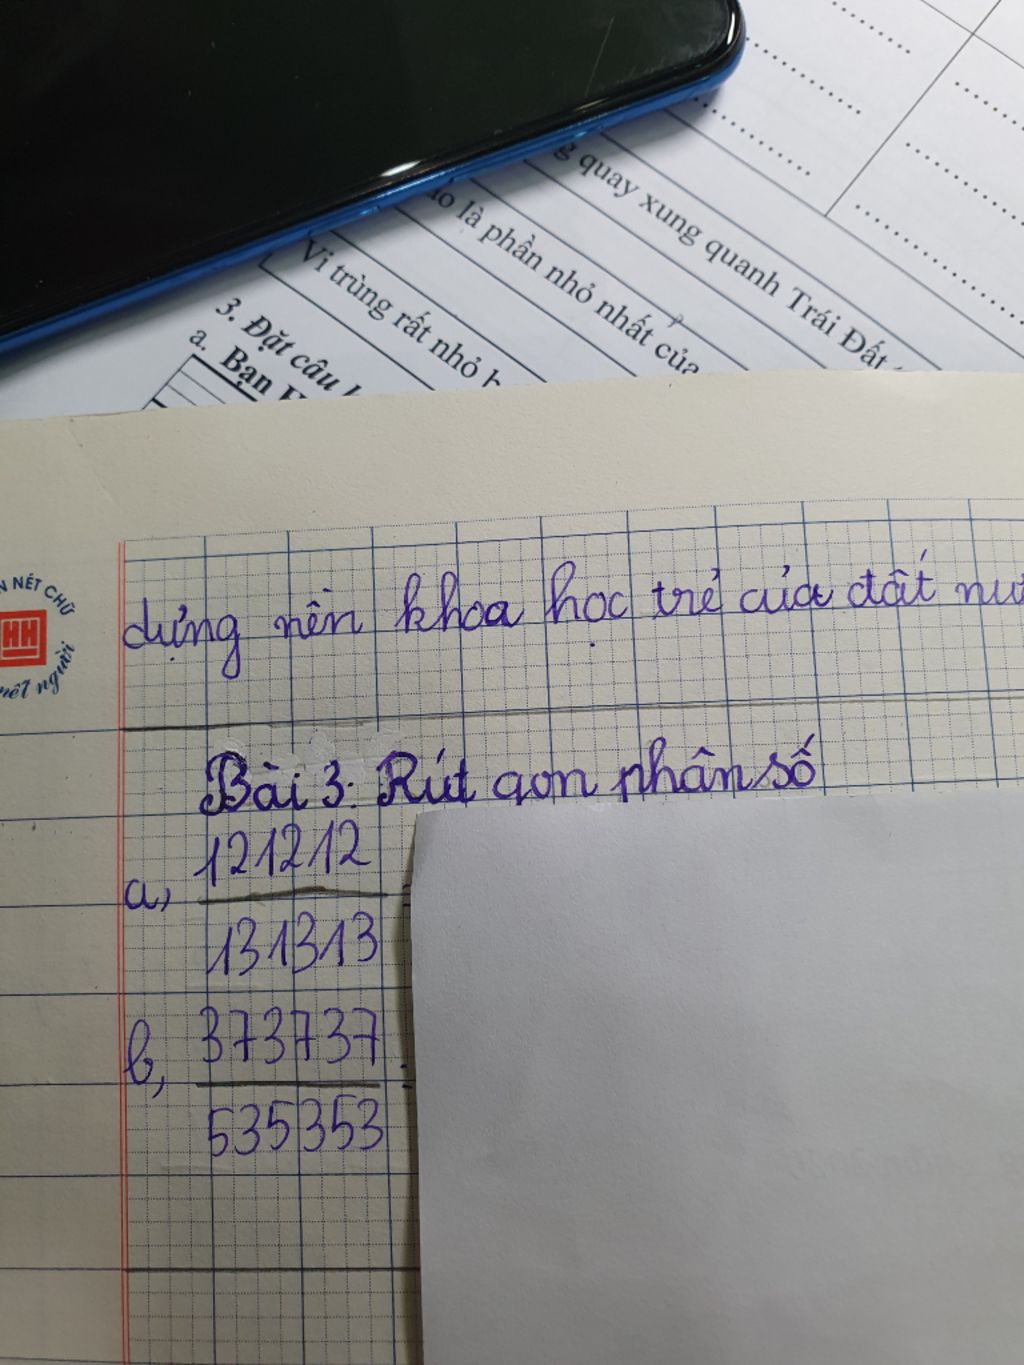 g quay xung quanh Trái Đất
là phần nhỏ nhất của
Vi trùng rất nhỏ b
3. Đặt câu
a. Bạn H
NÉT CHỮ
HH
nết người
dựng nền khoa học trẻ của đất nư
Bài 3: Rút gọn phân số
a, 121212
131313
b, 373737
535353